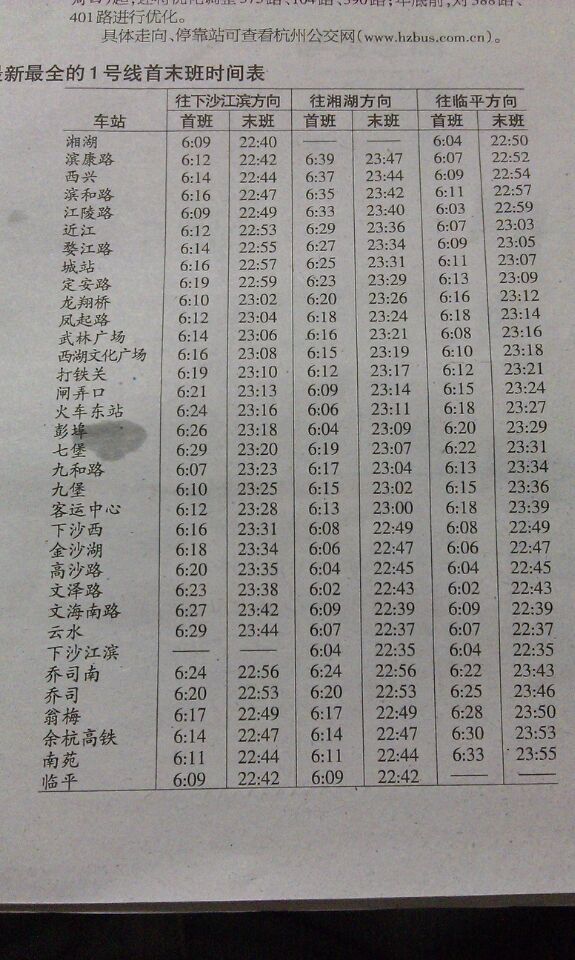 401路进行优化。
具体走向、停靠站可查看杭州公交网(www.hzbus.com.cn)。
最新最全的1号线首末班时间表
车站 往下沙江滨方向 往湘湖方向 往临平方向
首班 末班 首班 末班 首班 末班
湘湖 6:09 22:40 —— —— 6:04 22:50
滨康路 6:12 22:42 6:39 23:47 6:07 22:52
西兴 6:14 22:44 6:37 23:44 6:09 22:54
滨和路 6:16 22:47 6:35 23:42 6:11 22:57
江陵路 6:09 22:49 6:33 23:40 6:03 22:59
近江 6:12 22:53 6:29 23:36 6:07 23:03
婺江路 6:14 22:55 6:27 23:34 6:09 23:05
城站 6:16 22:57 6:25 23:31 6:11 23:07
定安路 6:19 22:59 6:23 23:29 6:13 23:09
龙翔桥 6:10 23:02 6:20 23:26 6:16 23:12
凤起路 6:12 23:04 6:18 23:24 6:18 23:14
武林广场 6:14 23:06 6:16 23:21 6:08 23:16
西湖文化广场 6:16 23:08 6:15 23:19 6:10 23:18
打铁关 6:19 23:10 6:12 23:17 6:12 23:21
闸弄口 6:21 23:13 6:09 23:14 6:15 23:24
火车东站 6:24 23:16 6:06 23:11 6:18 23:27
彭埠 6:26 23:18 6:04 23:09 6:20 23:29
七堡 6:29 23:20 6:19 23:07 6:22 23:31
九和路 6:07 23:23 6:17 23:04 6:13 23:34
九堡 6:10 23:25 6:15 23:02 6:15 23:36
客运中心 6:12 23:28 6:13 23:00 6:18 23:39
下沙西 6:16 23:31 6:08 22:49 6:08 22:49
金沙湖 6:18 23:34 6:06 22:47 6:06 22:47
高沙路 6:20 23:35 6:04 22:45 6:04 22:45
文泽路 6:23 23:38 6:02 22:43 6:02 22:43
文海南路 6:27 23:42 6:09 22:39 6:09 22:39
云水 6:29 23:44 6:07 22:37 6:07 22:37
下沙江滨 —— —— 6:04 22:35 6:04 22:35
乔司南 6:24 22:56 6:24 22:56 6:22 23:43
乔司 6:20 22:53 6:20 22:53 6:25 23:46
翁梅 6:17 22:49 6:17 22:49 6:28 23:50
余杭高铁 6:14 22:47 6:14 22:47 6:30 23:53
南苑 6:11 22:44 6:11 22:44 6:33 23:55
临平 6:09 22:42 6:09 22:42 —— ——